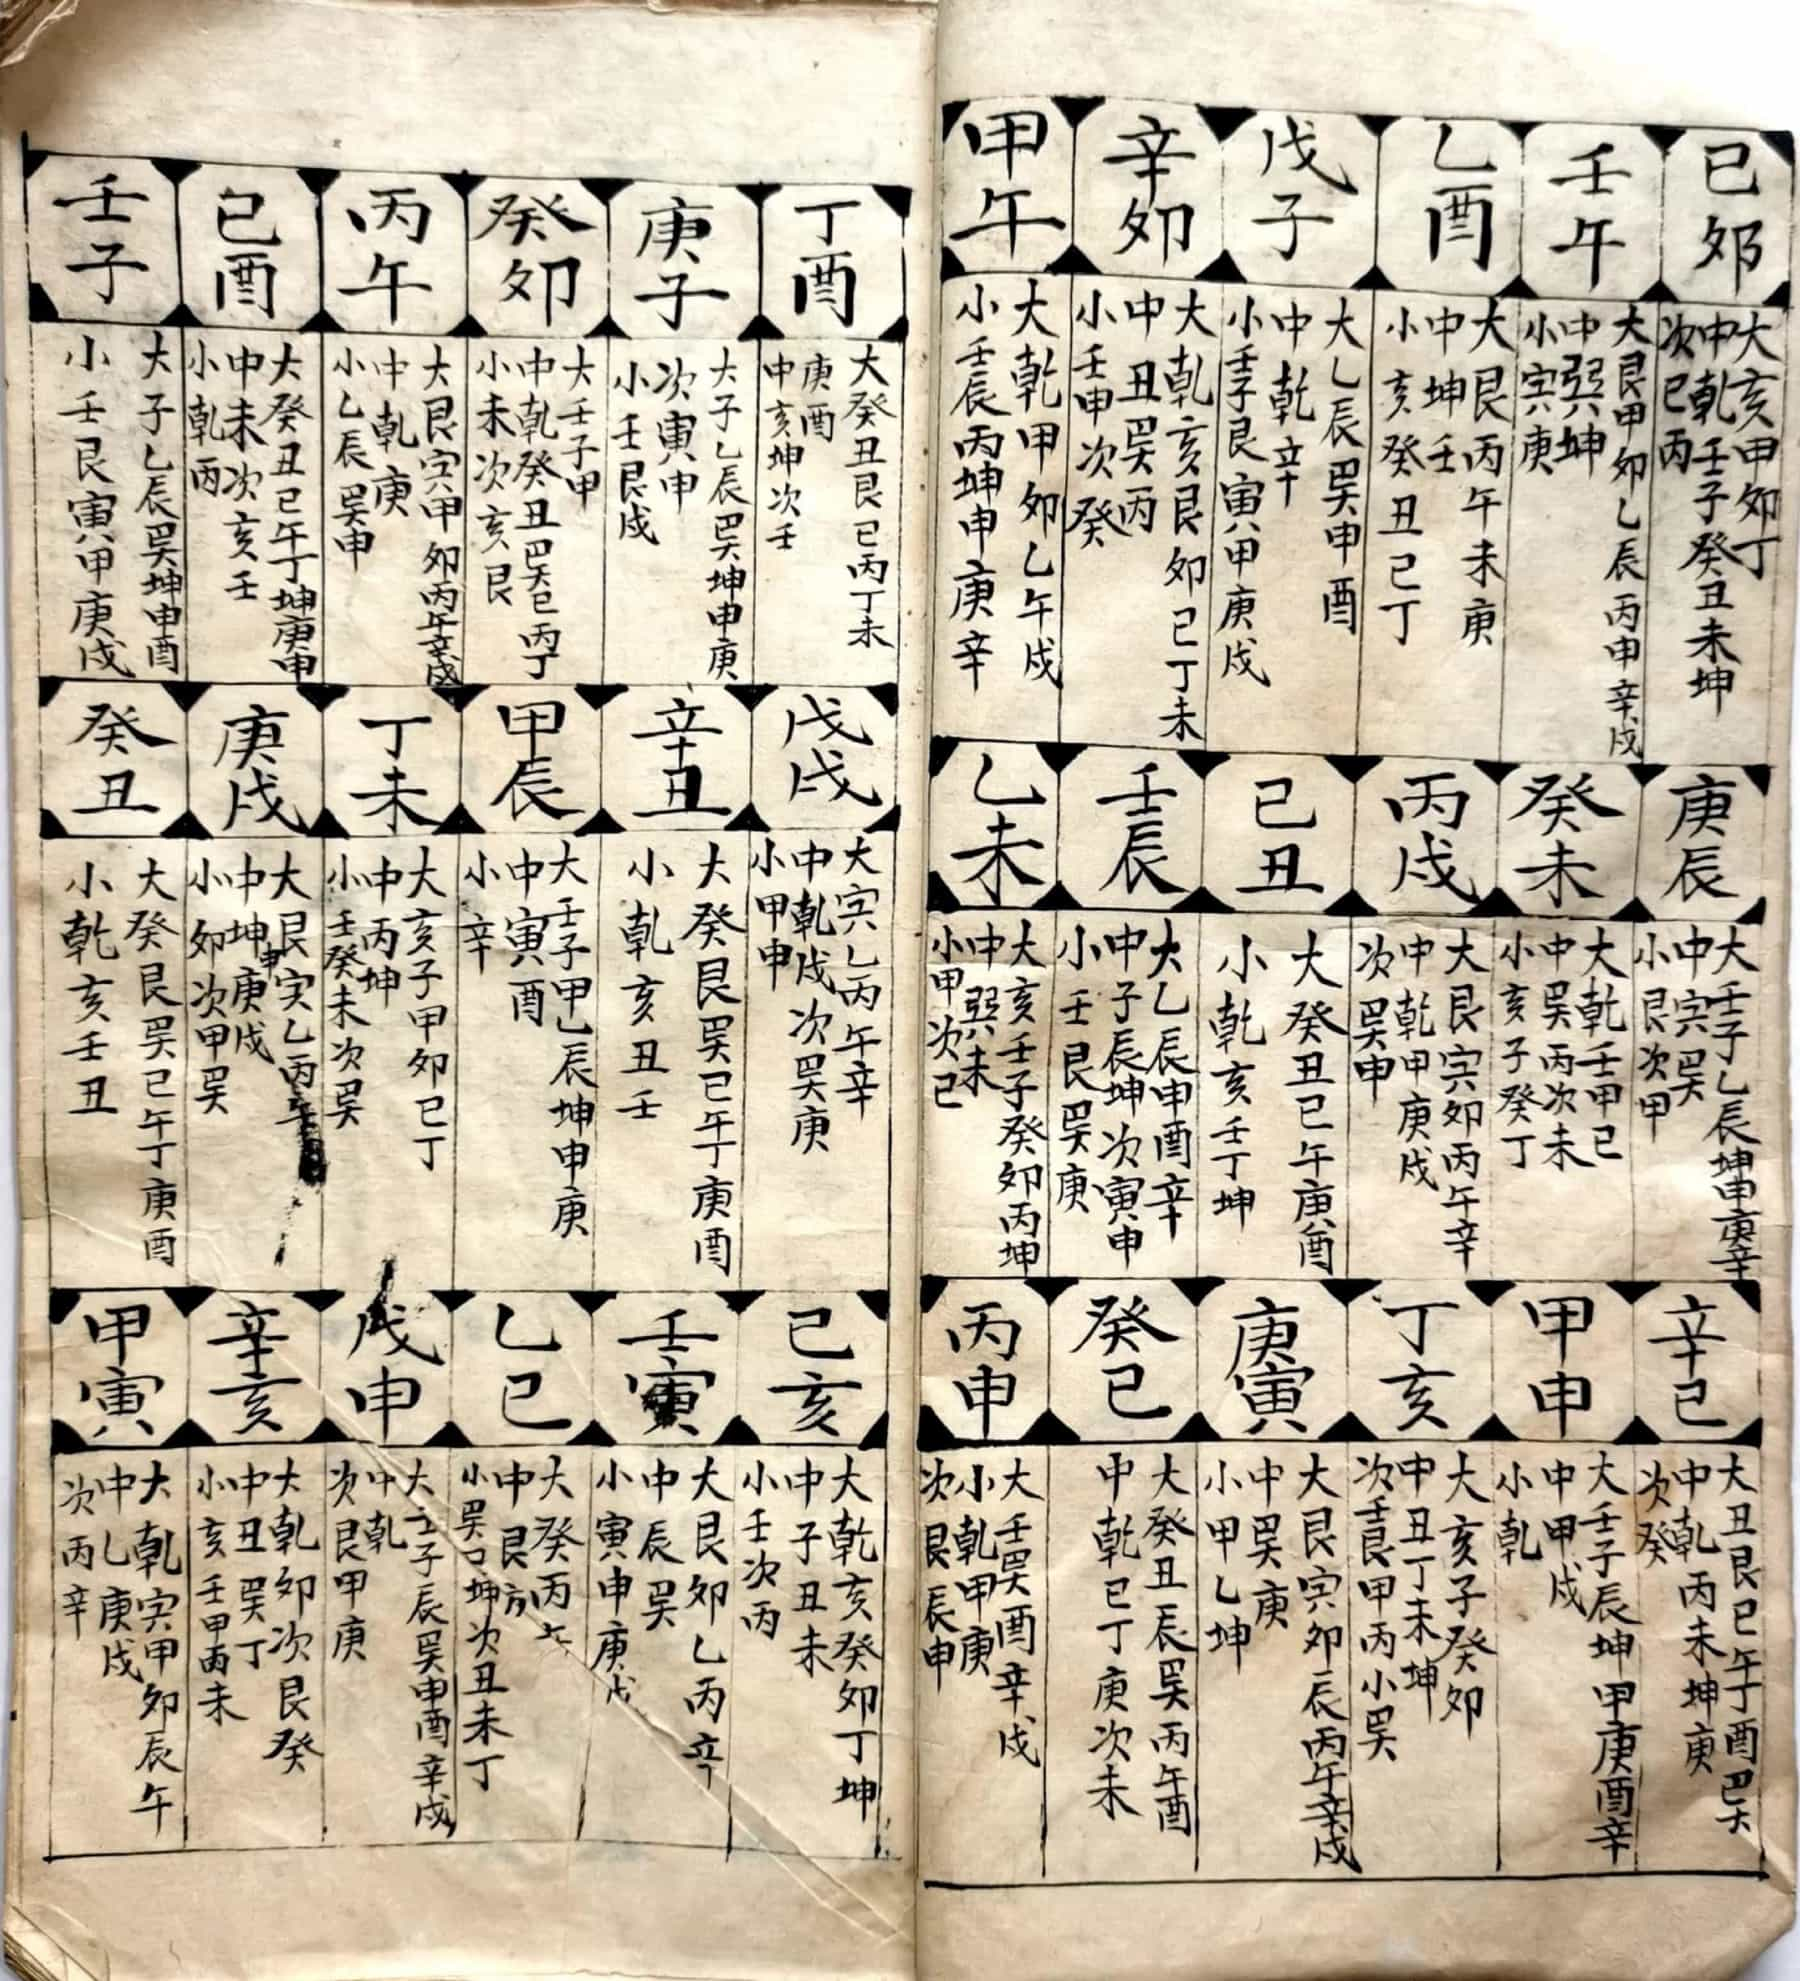 己卯
大亥甲卯丁
中乾壬子癸丑未坤
次巳丙
庚辰
大壬子乙辰坤申庚辛
中寅巽
小艮次甲
辛巳
大丑艮巳午丁酉巽
中乾丙未坤庚
次癸
壬午
大艮甲卯乙辰丙申辛戌
中巽坤
小寅庚
癸未
大乾壬甲巳
中巽丙次未
小亥子癸丁
甲申
大壬子辰坤甲庚酉辛
中甲戌
小乾
乙酉
大艮丙午未庚
中坤壬
小亥癸丑巳丁
丙戌
大艮寅卯丙午辛
中乾甲庚戌
次巽申
丁亥
大亥子癸卯
中丑丁未坤
次壬艮甲丙小巽
戊子
大乙辰巽申酉
中乾辛
小壬子艮寅甲庚戌
己丑
大癸丑巳午庚酉
小乾亥壬丁坤
庚寅
大艮寅卯辰丙午辛戌
中巽庚
小甲乙坤
辛卯
大乾亥艮卯巳丁未
中丑巽丙
小壬申次癸
壬辰
大乙辰申酉辛
中子辰坤次寅申
小壬艮巽庚
癸巳
大癸丑辰巽丙午酉
中乾巳丁庚次未
甲午
大乾甲卯乙午戌
小壬辰丙坤申庚辛
乙未
大亥壬子癸卯丙坤
中巽未
小甲次巳
丙申
大壬巽酉辛戌
小乾甲庚
次艮辰申
丁酉
大癸丑艮巳丙丁未
庚酉
中亥坤次壬
戊戌
大寅乙丙午辛
中乾戌次巽庚
小甲申
己亥
大乾亥癸卯丁坤
中子丑未
小壬次丙
庚子
大子乙辰巽坤申庚
次寅申
小壬艮戌
辛丑
大癸艮巽巳午丁庚酉
小乾亥丑壬
壬寅
大艮卯乙丙辛
中辰巽
小寅申庚戌
癸卯
大壬子甲
中乾癸丑巽巳丙丁
小未次亥艮
甲辰
大壬子甲乙辰坤申庚
中寅酉
小辛
乙巳
大癸丙
中艮
小巽坤次丑未丁
丙午
大艮寅甲卯丙午辛戌
中乾庚
小乙辰巽申
丁未
大亥子甲卯巳丁
中丙坤
小壬癸未次巽
戊申
大壬子辰巽申酉辛戌
中乾
次艮甲庚
己酉
大癸丑巳午丁坤庚申
中未次亥壬
小乾丙
庚戌
大艮寅乙丙午
中坤申庚戌
小卯次甲巽
辛亥
大乾卯次艮癸
中丑巽丁
小亥壬甲丙未
壬子
大子乙辰巽坤申酉
小壬艮寅甲庚戌
癸丑
大癸艮巽巳午丁庚酉
小乾亥壬丑
甲寅
大乾寅甲卯辰午
中乙庚戌
次丙辛